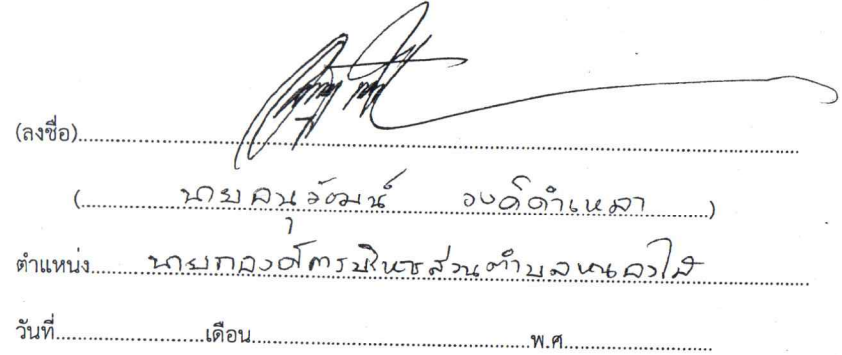 (ลงชื่อ)
(นายอนุวัฒน์ วงค์ดำเหลา)
ตำแหน่ง นายกองค์การบริหารส่วนตำบลหนองไผ่
วันที่ เดือน พ.ศ.